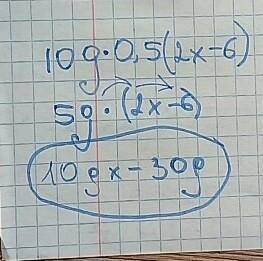 10g·0,5(2x-6)
5g·(2x-6)
10gx-30g